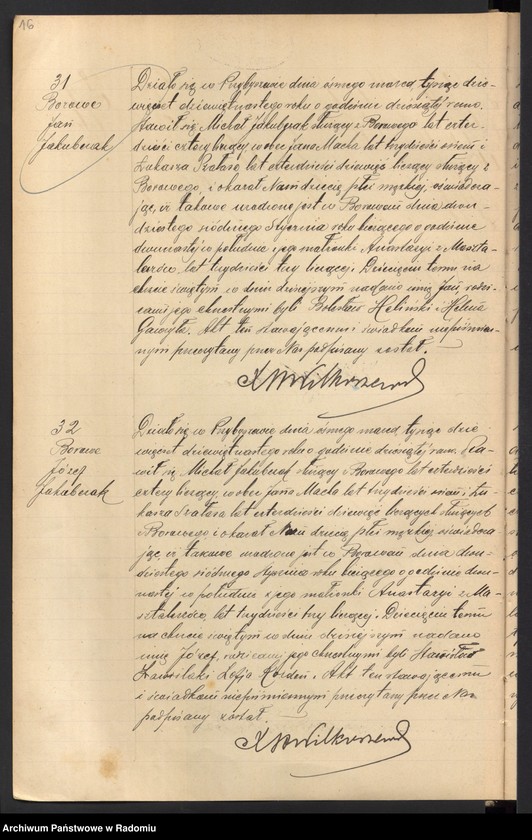 16
31
Borowe
Jan
Jakubczak
Działo się w Przybyszewie dnia ósmego marca tysiąc dzie-
więćset dziewiętnastego roku o godzinie dziesiątej rano.
Stawił się Michał Jakubczak służący z Borowego lat czter-
dzieści cztery liczący, w obec Jana Macha lat trzydzieści ośm i
Łukasza Szatasa lat czterdzieści dziewięć liczący służący z
Borowego, i okazał Nam dziecię płci męzkiej, oświadcza-
jąc, iż takowe urodzone jest w Borowem dnia dwu-
dziestego siódmego Stycznia roku bieżącego o godzinie
dwunastej w południe z jego małżonki Anastazyi z Maszta-
lerzów, lat trzydzieści trzy liczącej. Dziecięciu temu na
chrzcie świętym w dniu dzisiejszym nadano imię Jan, rodzi-
cami jego chrzestnymi byli Bolesław Heliński i Helena
Akt ten stawającemu i świadkom niepiśmien-
nym przeczytany przez Nas podpisany został.
32
Borowe
Józef
Jakubczak
Działo się w Przybyszewie dnia ósmego marca tysiąc dzie
więćset dziewiętnastego roku o godzinie dziesiątej rano. Sta-
wił się Michał Jakubczak służący z Borowego lat czterdzieści
cztery liczący, w obec Jana Macha lat trzydzieści ośm i Łu-
kasza Szatasa lat czterdzieści dziewięć liczących służących
z Borowego i okazał Nam dziecię płci męzkiej oświadcza
jąc, iż takowe urodzone jest w Borowem dnia dwu-
dziestego siódmego Stycznia roku bieżącego o godzinie dwu-
nastej w południe z jego małżonki Anastazyi z Ma-
sztalerzów, lat trzydzieści trzy liczącej. Dziecięciu temu
na chrzcie świętym w dniu dzisiejszym nadano
imię Józef, rodzicami jego chrzestnymi byli Stanisław
Zofja Kordos. Akt ten stawającemu
i świadkom niepiśmiennym przeczytany przez Nas
podpisany został.
Archiwum Państwowe w Radomiu